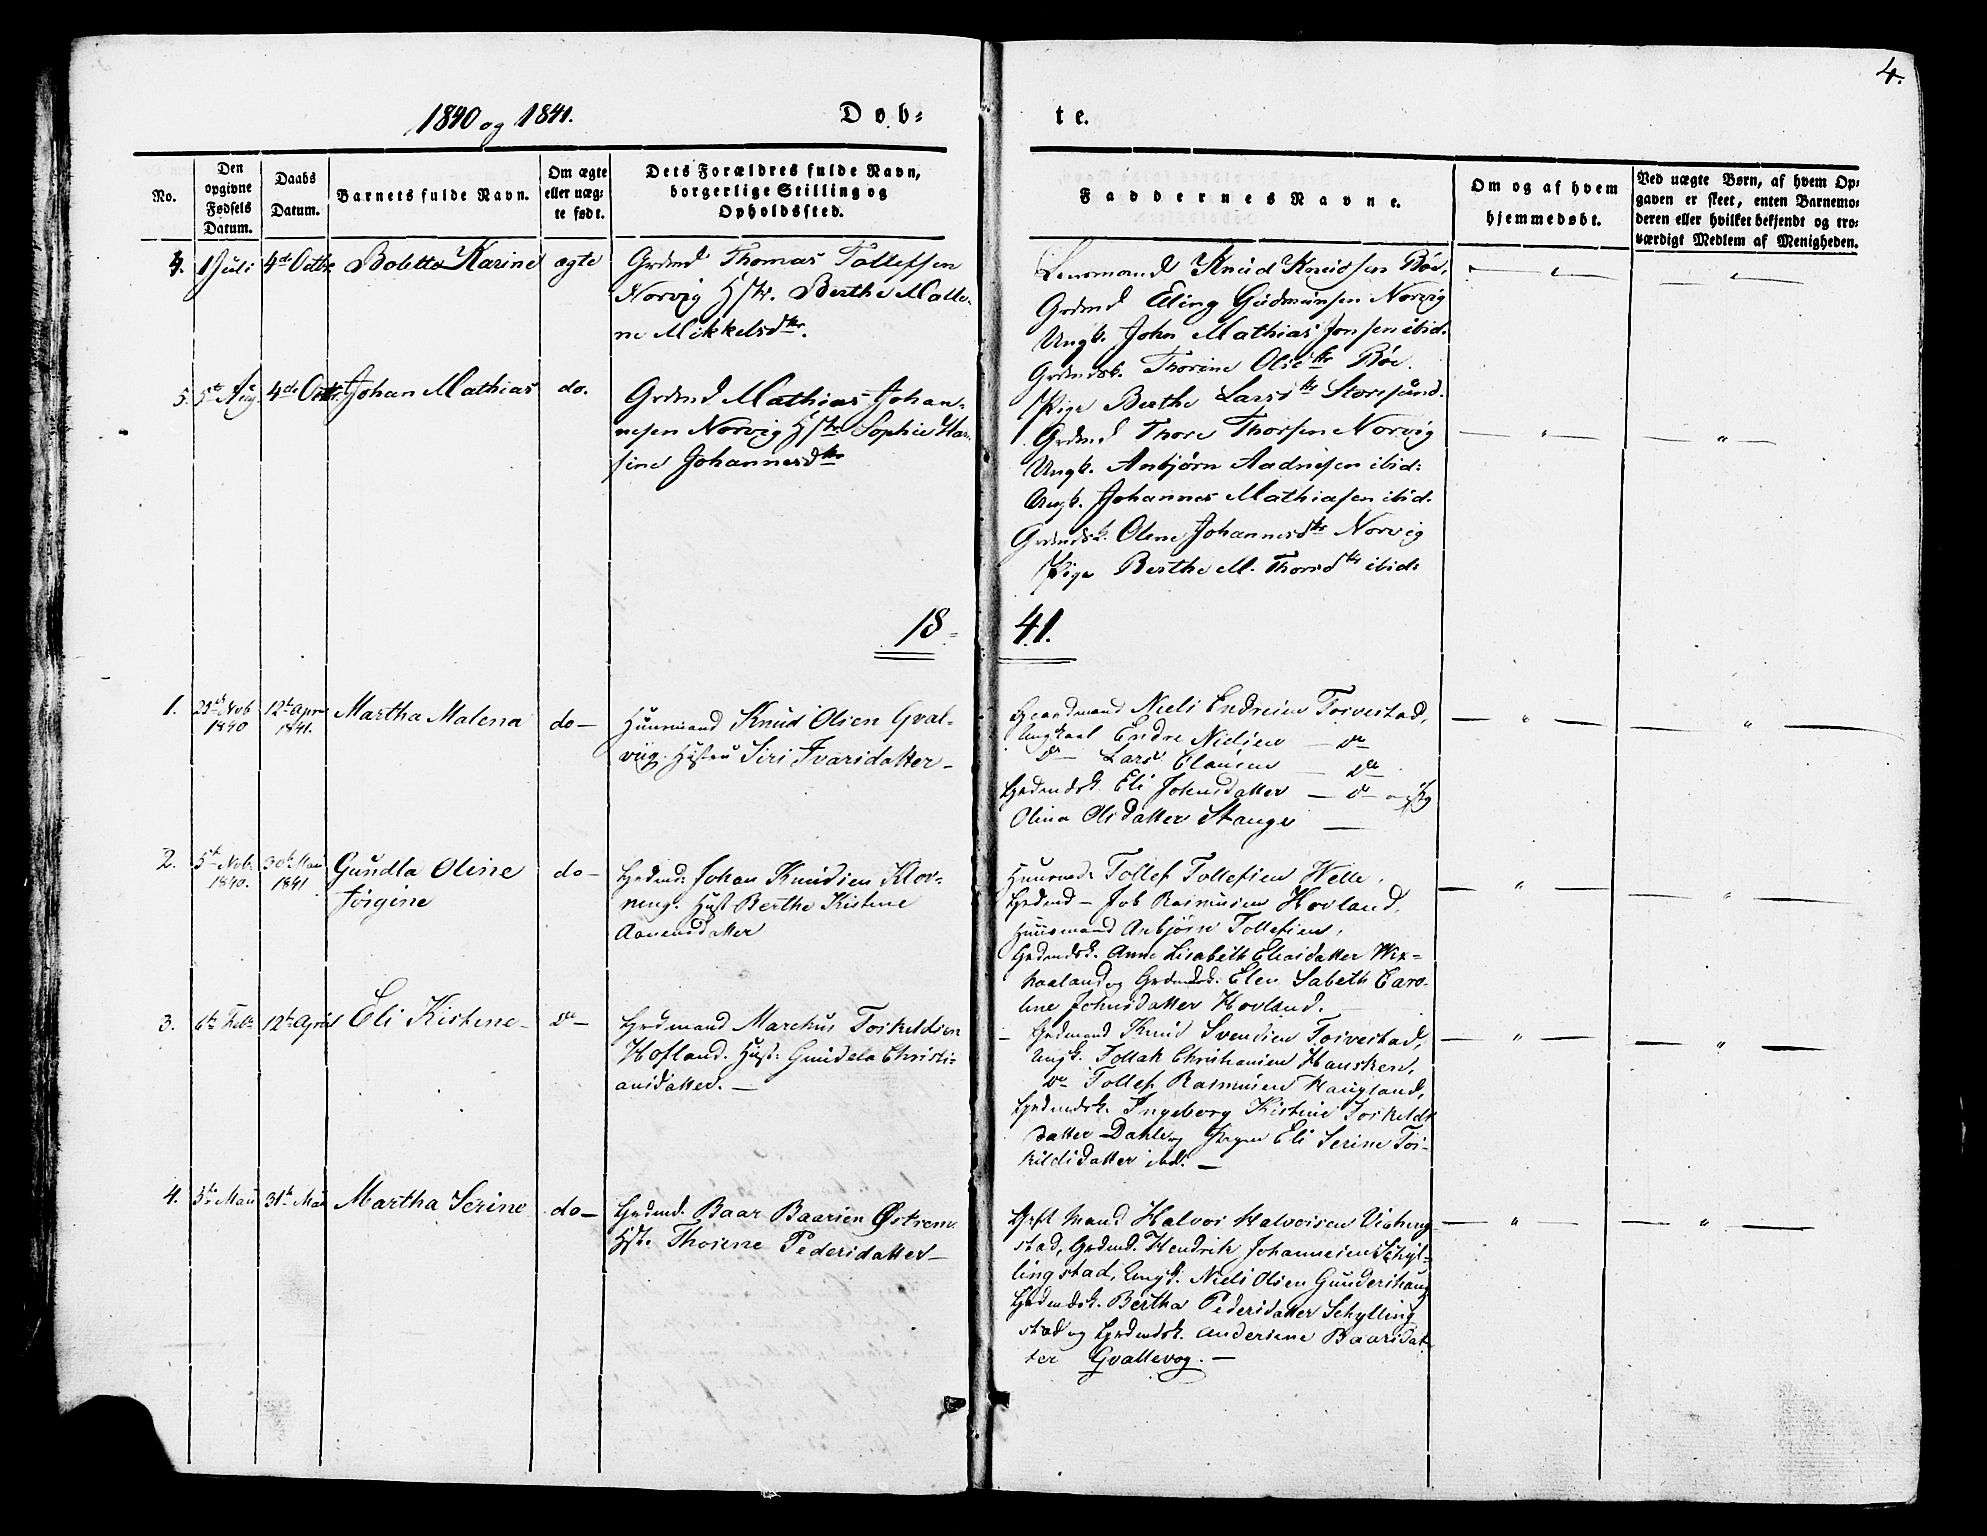 4.
1840 og 1841.
Døb-
te.
No.
Den opgivne Fødsels Datum.
Daabs Datum.
Barnets fulde Navn.
Om ægte eller uægte født.
Dets Forældres fulde Navn, borgerlige Stilling og Opholdssted.
Faddernes Navne.
Om og af hvem hjemmedøbt.
Ved uægte Børn, af hvem Opgaven er skeet, enten Barnemoderen eller hvilket bekjendt og troværdigt Medlem af Menigheden.
4. 1 Juli 4de Octbr Bolette Karine ægte
Grdmd Thomas Tollefsen
Norvig Hstr. Berthe Malle-
ne Mikkelsdtr.
Lensmand Knud Knudsen Bøe,
Grdmd Eling Gudmunsen Norvig
Ungk. John Mathias Jonsen ibid.
Grdmdsk. Thorine Olsdtr Bøe.
Pige Berthe Larsdtr Storesund.
5. 5te Aug 4de Octbr. Johan Mathias do.
Grdmd Mathias Johan-
nesen Norvig Hstr Sophie Mar-
sine Johannesdtr
Grdmd Thore Thorsen Norvig
Ungk. Anbjørn Aadnesen ibid:
Ungk. Johannes Mathiasen ibid.
Grdmdsk. Olene Johannesdtr Norvig
Pige Berthe M. Thorsdtr ibid:
18-
41.
1. Novb 1840 12te April 1841. Martha Malena do-
Huusmand Knud Olsen Gval-
viig. Hustru Siri Ivarsdatter-
Gaardmand Niels Endresen Torvestad,
Ungkarl Endre Nielsen - do
do Lars Clausen - do
Grdmdsk. Eli Johnsdatter - do og Pig
Olina Olsdatter Stange -
2. 5te Novb. 1840. 30te Mai 1841 Gundla Oline
Jørgine do-
Grdmd: Johan Knudsen Klov-
ning. Hust Berthe Kistine
Aanensdatter
Huusmd: Tollef Tollefsen Welle,
Grdmd - Job Rasmusen Hovland,
Huusmand Anbjørn Tollefsen,
Grdmdsk. Anne Lisabeth Eliasdatter Wix-
haaland og Grdmdsk: Elen Sabeth Caro-
line Johnsdatter Hovland.
3. 6te Feb 12te April Eli Kistene- do-
Grdmand Marchus Torkeldsen
Hofland. Hust: Gundela Christi-
ansdatter. -
Grdmand Knud Svendsen Torvestad,
Ungk. Tollak Christiansen Hausken,
do Tollef Rasmusen Haugland,
Grdmdsk. Ingeborg Kistine Torkelds
datter Dahle og Pigen Eli Serine Tor-
kildsdatter ibd. -
4. 5te Mai 31te Mai Martha Serine do-
Grdmd. Baar Baarsen Østrem.
Hst. Thorene Pedersdatter-
Grft Mand Halvor Halvorsen Viching-
stad, Grdmd. Hendrik Johannesen Schyl-
lingstad, Ungk. Niels Olsen Gundershaug
Grdmdsk. Bertha Pedersdatter Schylling
stad og Grdmdsk. Andersine Baarsdat-
ter Gvallevog. -